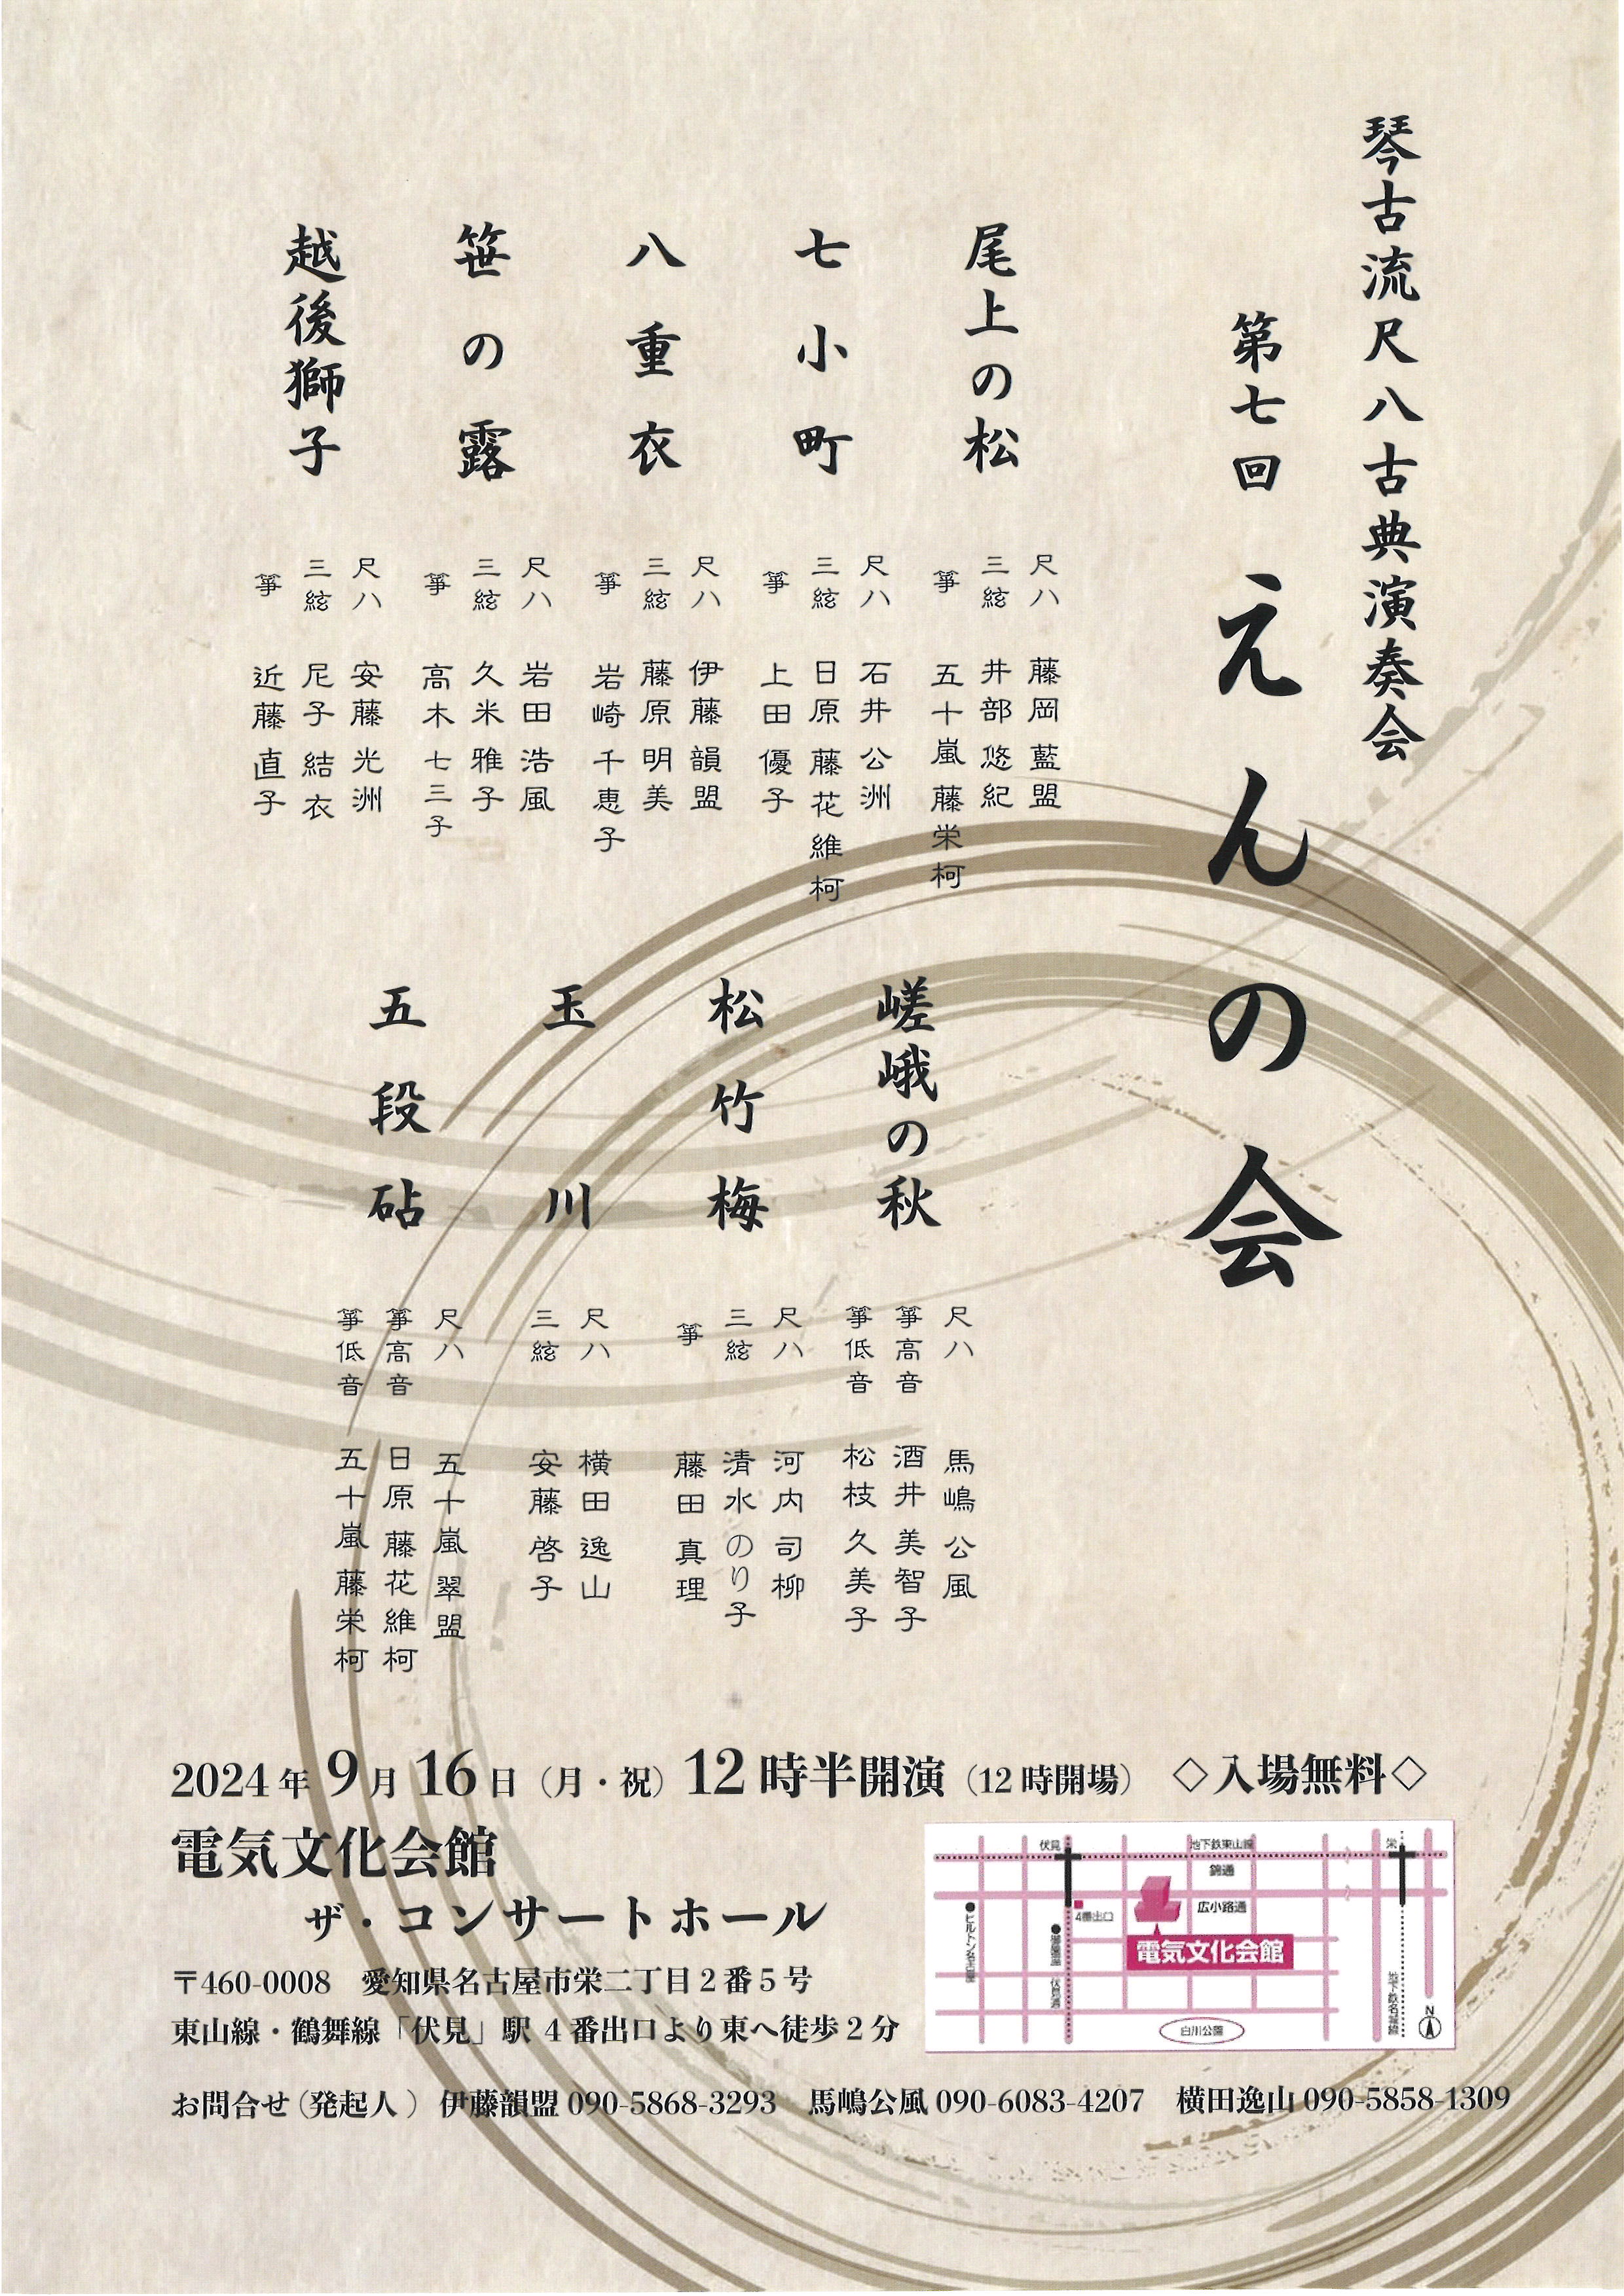 琴古流尺八古典演奏会
第七回 えんの会
尾上の松
尺八 藤岡 藍盟
三絃 井部 悠紀
箏 五十嵐 藤栄柯
七小町
尺八 石井 公洲
三絃 日原 藤花維柯
箏 上田 優子
八重衣
尺八 伊藤 韻盟
三絃 藤原 明美
箏 岩崎 千恵子
笹の露
尺八 岩田 浩風
三絃 久米 雅子
箏 高木 七三子
越後獅子
尺八 安藤 光洲
三絃 尼子 結衣
箏 近藤 直子
嵯峨の秋
尺八 馬嶋 公風
箏高音 酒井 美智子
箏低音 松枝 久美子
松竹梅
尺八 河内 司柳
三絃 清水 のり子
箏 藤田 真理
玉川
尺八 横田 逸山
三絃 安藤 啓子
五段砧
尺八 五十嵐 翠盟
箏高音 日原 藤花維柯
箏低音 五十嵐 藤栄柯
2024年9月16日（月・祝）12時半開演（12時開場） ◇入場無料◇
電気文化会館
ザ・コンサートホール
〒460-0008 愛知県名古屋市栄二丁目2番5号
東山線・鶴舞線「伏見」駅 4番出口より東へ徒歩2分
お問合せ（発起人） 伊藤韻盟 090-5868-3293 馬嶋公風 090-6083-4207 横田逸山 090-5858-1309
伏見
地下鉄東山線
栄
錦通
広小路通
4番出口
ヒルトン名古屋
御園座
伏見通
電気文化会館
地下鉄名城線
白川公園
N